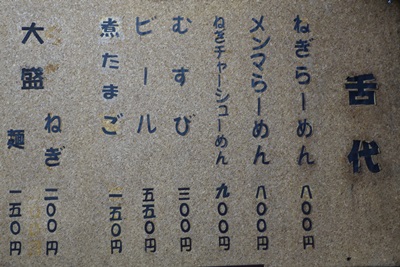 舌代
ねぎらーめん 八〇〇円
メンマらーめん 八〇〇円
ねぎチャーシューめん 九〇〇円
むすび 三〇〇円
ビール 五五〇円
煮たまご 一五〇円
大盛 ねぎ 二〇〇円
麺 一五〇円